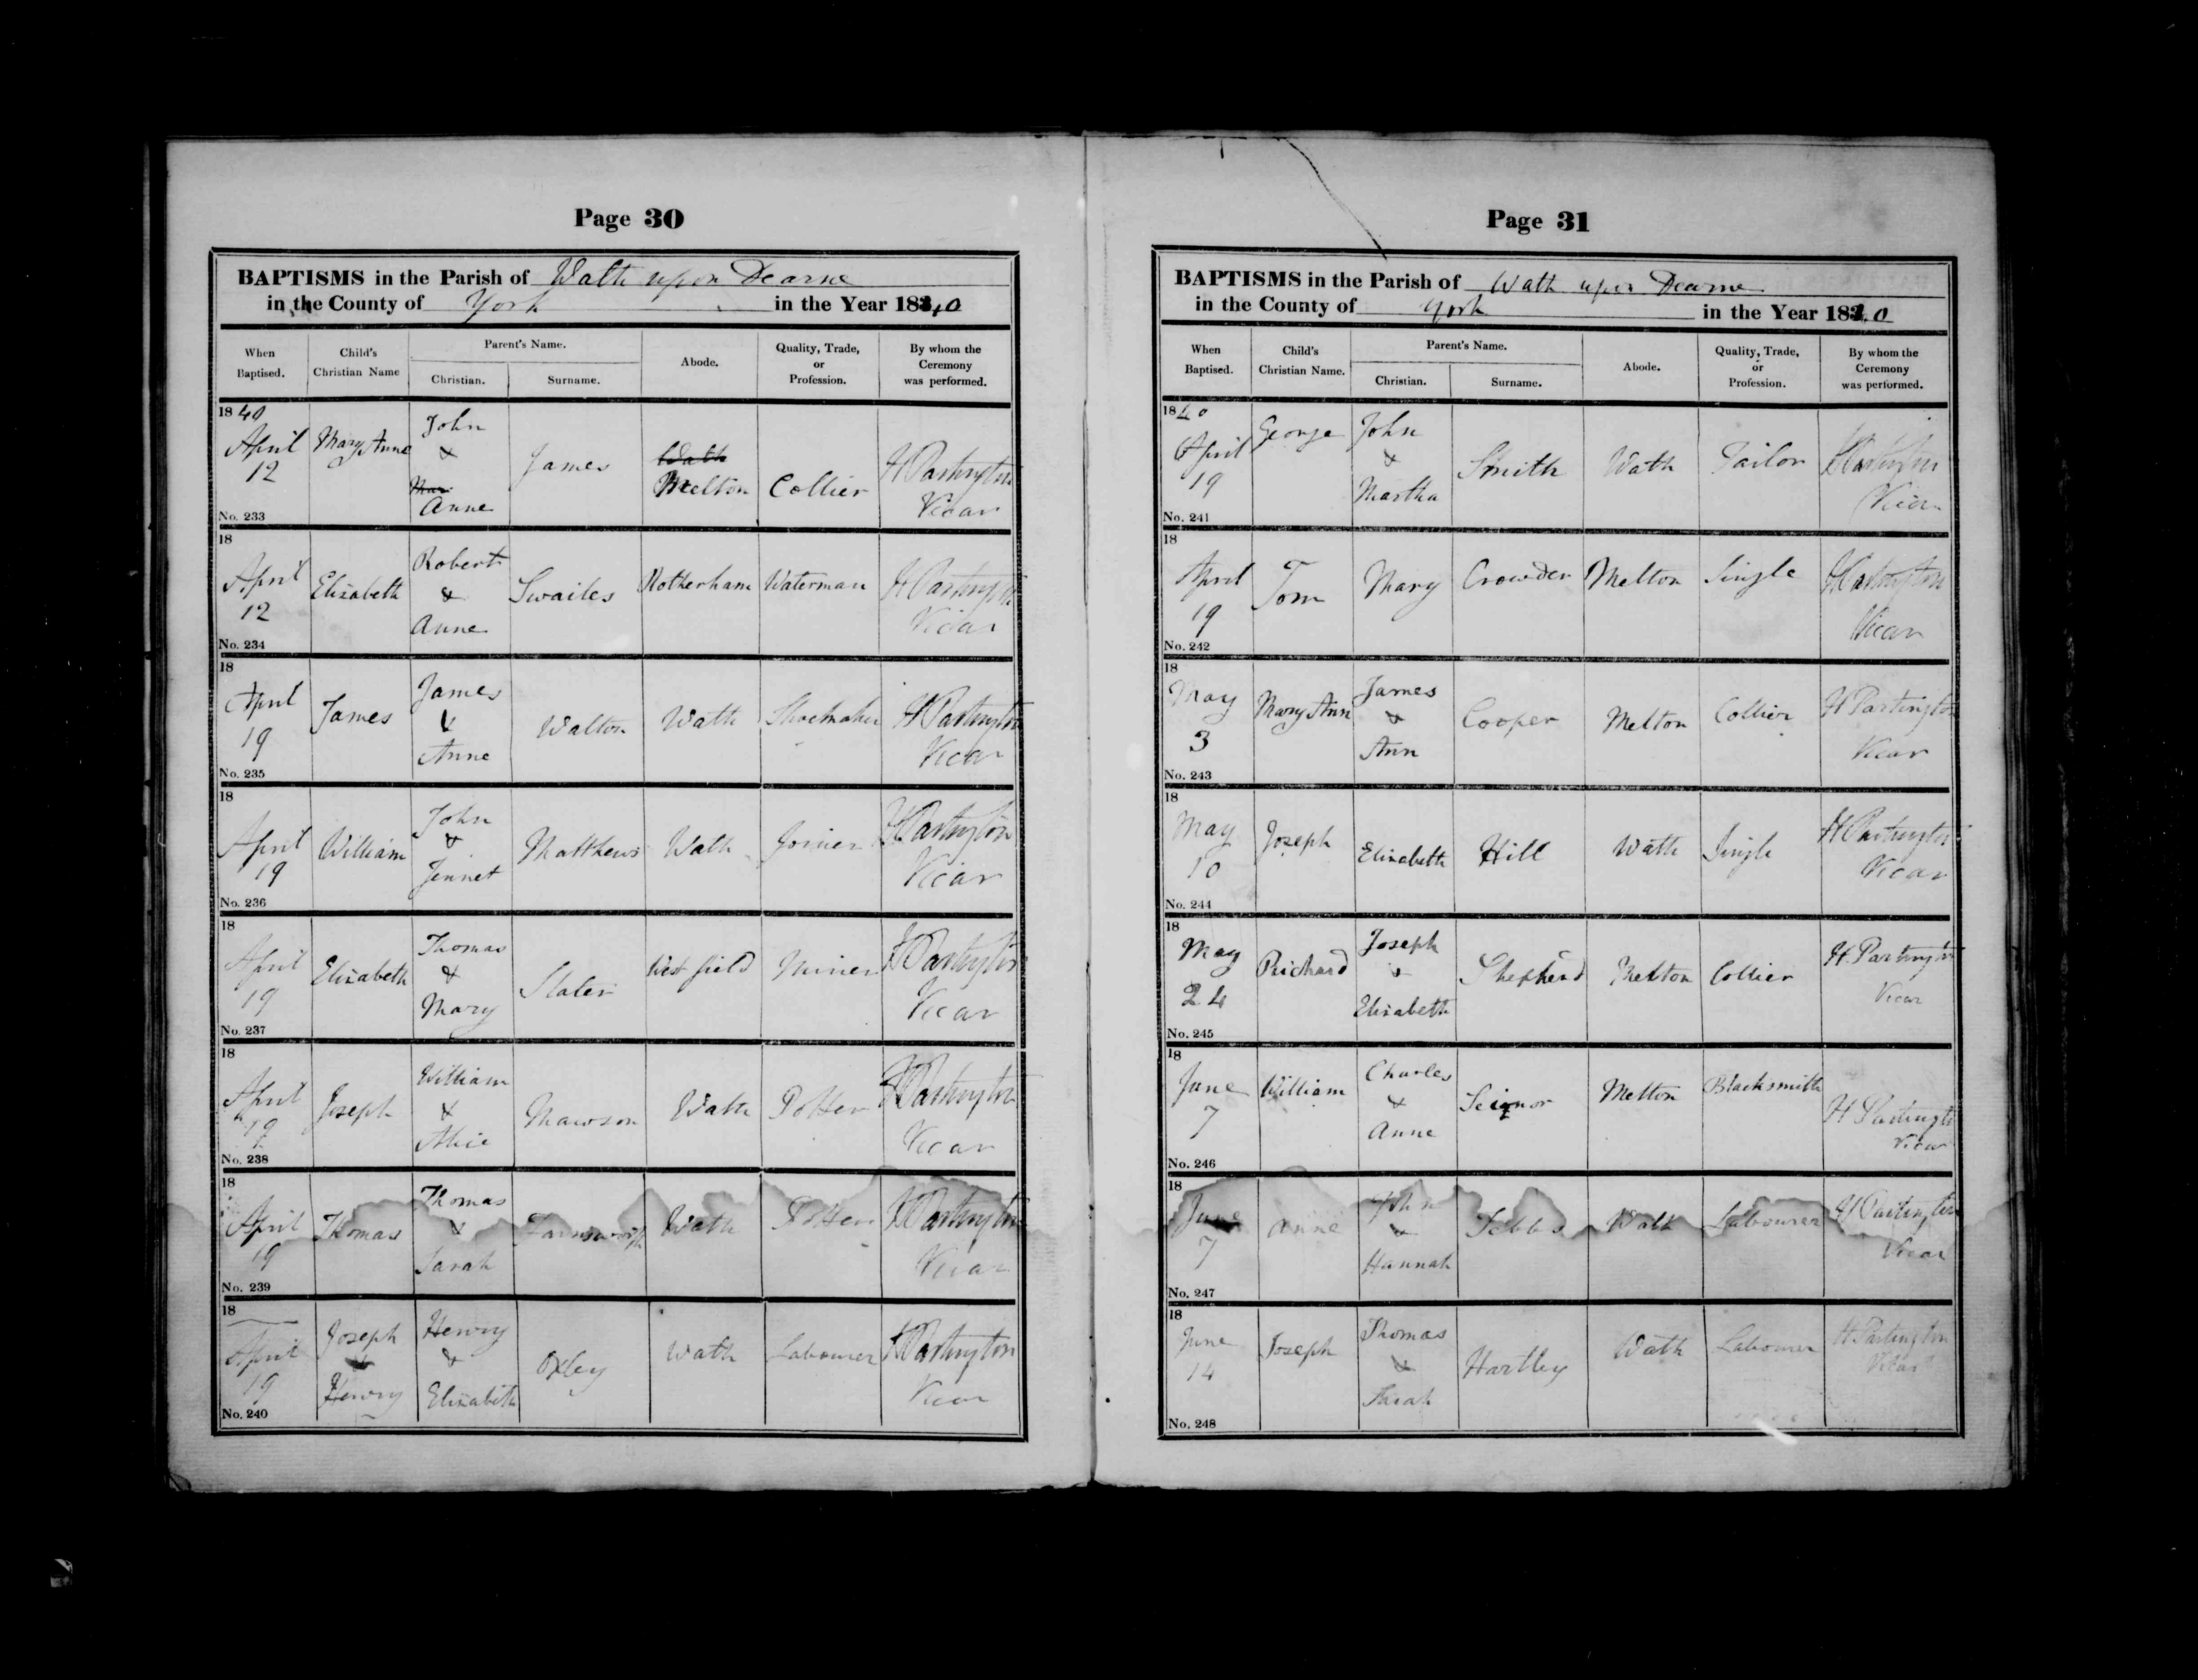 Page 30
BAPTISMS in the Parish of Wath upon Dearne
in the County of York in the Year 1840
When Baptised.
Child's Christian Name
Parent's Name.
Christian.
Surname.
Abode.
Quality, Trade, or Profession.
By whom the Ceremony was performed.
1840 April 12 Mary Anne John & Mar Anne James Wath Melton Collier H Partington Vicar
No. 233
18 April 12 Elizabeth Robert & Anne Swailes Rotherham Waterman H Partington Vicar
No. 234
18 April 19 James James & Anne Walton Wath Shoemaker H Partington Vicar
No. 235
18 April 19 William John & Jennet Matthews Wath Joiner H Partington Vicar
No. 236
18 April 19 Elizabeth Thomas & Mary Slater West field Miner H Partington Vicar
No. 237
18 April 19 Joseph William & Alice Mawson Wath Potter H Partington Vicar
No. 238
18 April 19 Thomas Thomas & Sarah Farnsworth Wath Potter H Partington Vicar
No. 239
18 April 19 Joseph & Henry Henry & Elizabeth Oxley Wath Labourer H Partington Vicar
No. 240
Page 31
BAPTISMS in the Parish of Wath upon Dearne
in the County of York in the Year 1840
When Baptised.
Child's Christian Name.
Parent's Name.
Christian.
Surname.
Abode.
Quality, Trade, or Profession.
By whom the Ceremony was performed.
1840 April 19 George John & Martha Smith Wath Tailor H Partington Vicar
No. 241
18 April 19 Tom Mary Crowder Melton Single H Partington Vicar
No. 242
18 May 3 Mary Ann James & Ann Cooper Melton Collier H Partington Vicar
No. 243
18 May 10 Joseph Elizabeth Hill Wath Single H Partington Vicar
No. 244
18 May 24 Richard Joseph & Elizabeth Shepherd Melton Collier H Partington Vicar
No. 245
18 June 7 William Charles & Anne Seignor Melton Blacksmith H Partington Vicar
No. 246
18 June 7 Anne John & Hannah Tebbs Wath Labourer H Partington Vicar
No. 247
18 June 14 Joseph Thomas & Sarah Hartley Wath Labourer H Partington Vicar
No. 248